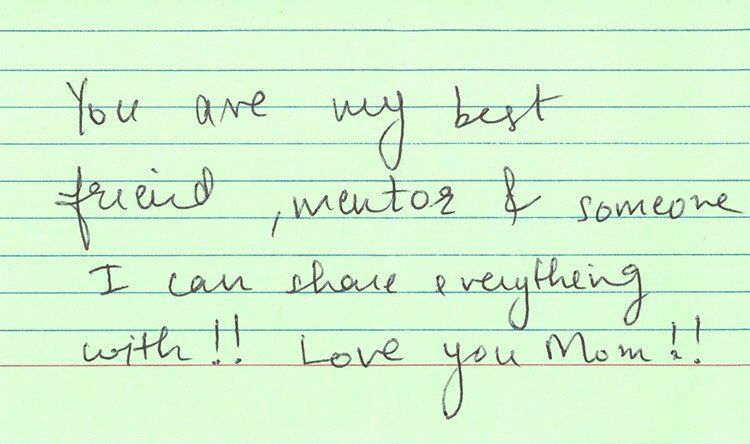 You are my best
friend, mentor & someone
I can share everything
with!! Love you Mom!!